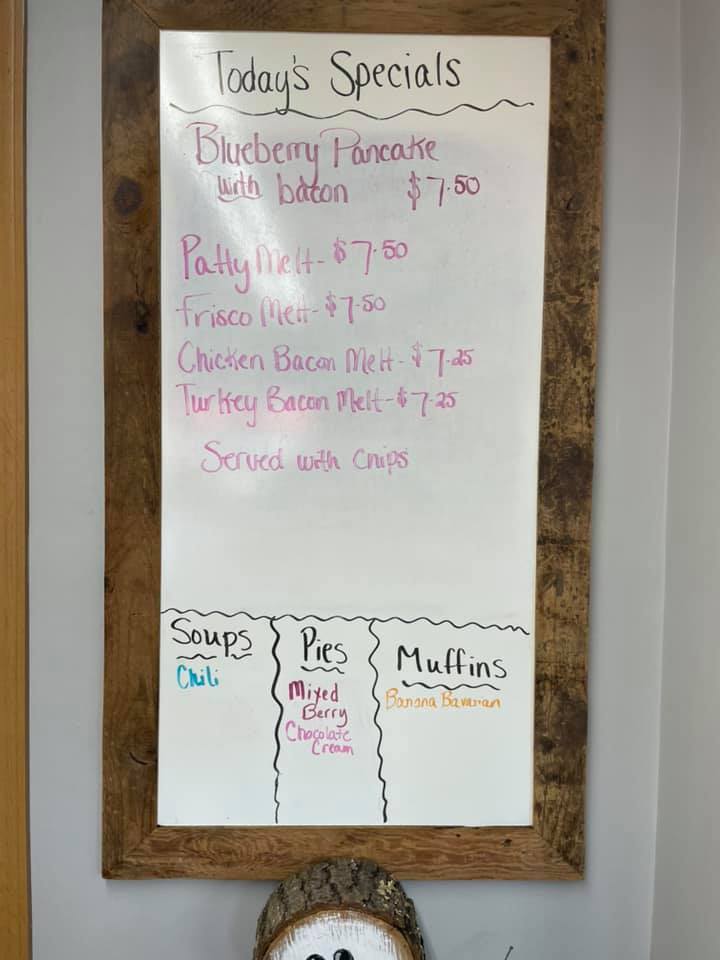 Today's Specials
Blueberry Pancake
with bacon $7.50
Patty Melt - $7.50
Frisco Melt - $7.50
Chicken Bacon Melt - $7.25
Turkey Bacon Melt - $7.25
Served with Chips
Soups
Chili
Pies
Mixed
Berry
Chocolate
Cream
Muffins
Banana Bavarian